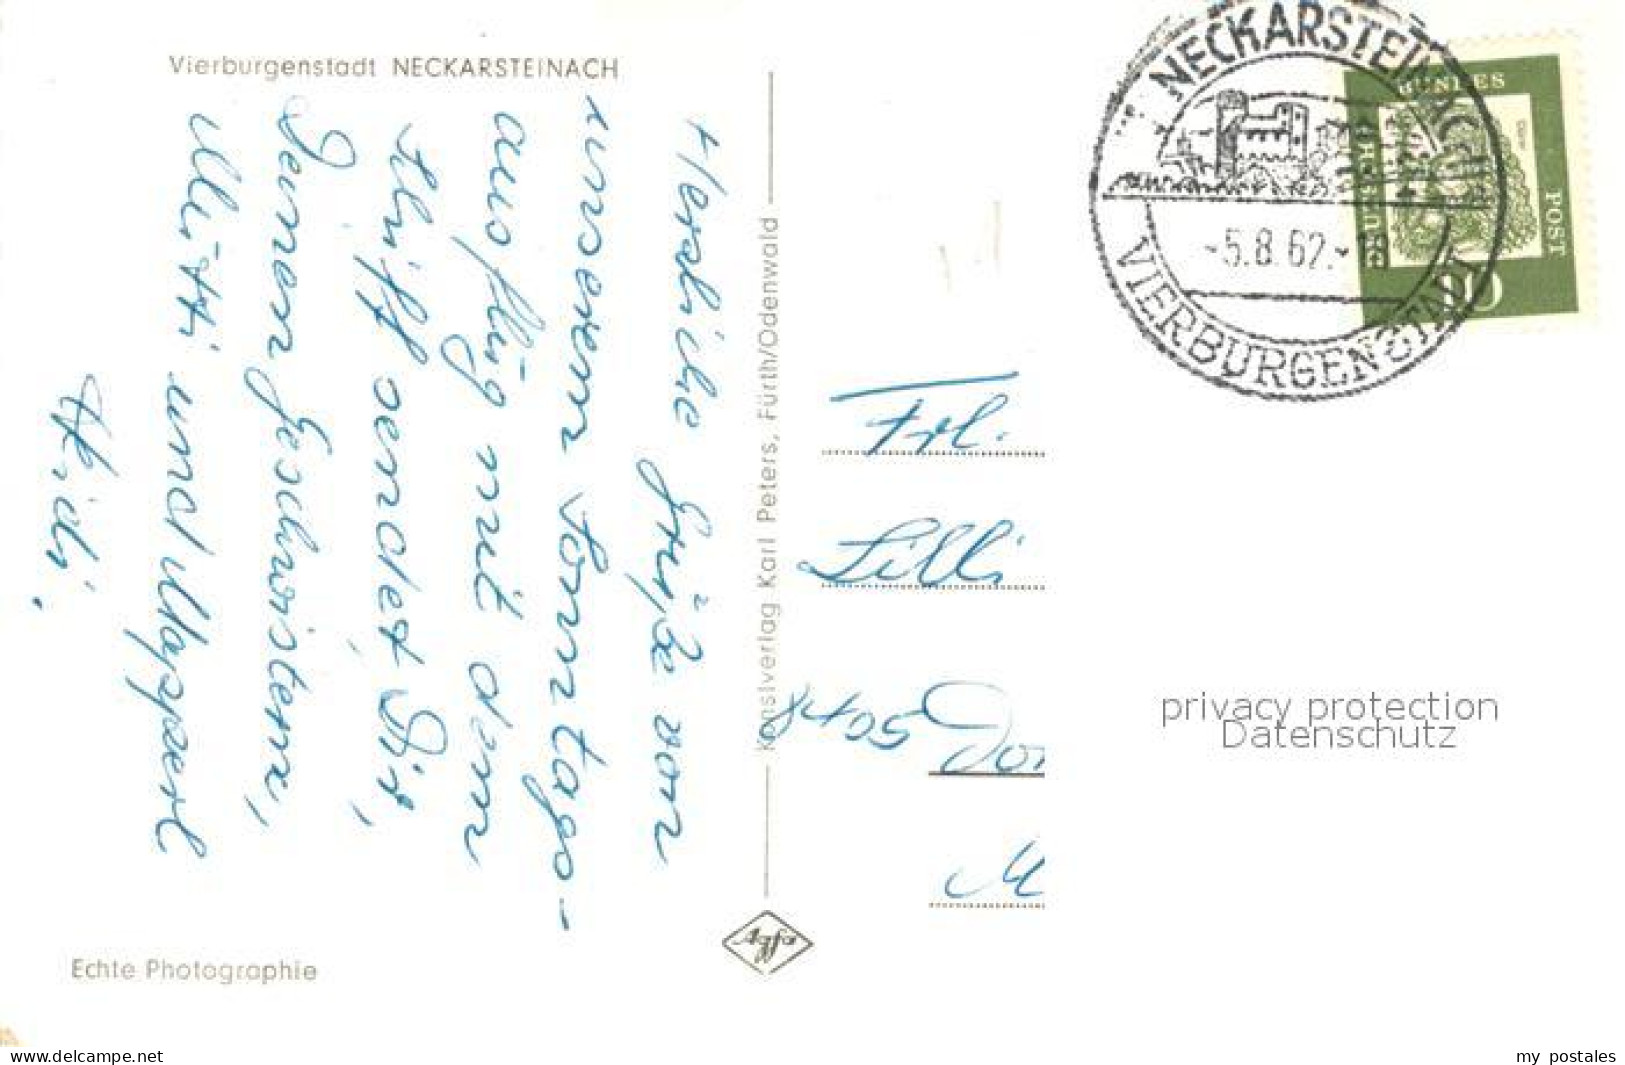 Vierburgenstadt NECKARSTEINACH
Herzliche Grüße von
unserem Sonntags-
ausflug mit dem
Schiff sendet Dir,
Deinen Geschwistern,
Mutti und
Heidi.
Echte Photographie
Kunstverlag Karl Peters, Fürth/Odenwald
Agfa
NECKARSTEINACH
-5.8.62.-18
VIERBURGENSTADT
BUNDES
POST
DEUTSCHE
10
Frl.
Lilli
privacy protection
Datenschutz
www.delcampe.net
my postales